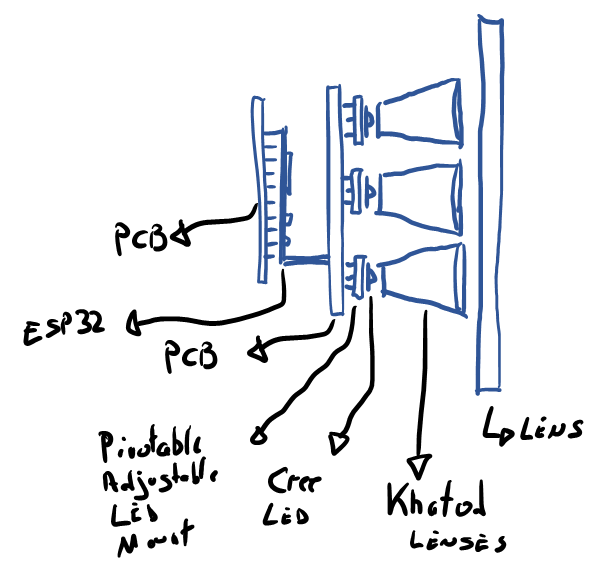 PCB
ESP32
PCB
Pivotable
Adjustable
LED
Mount
Cree
LED
Khatod
LENSES
LENS